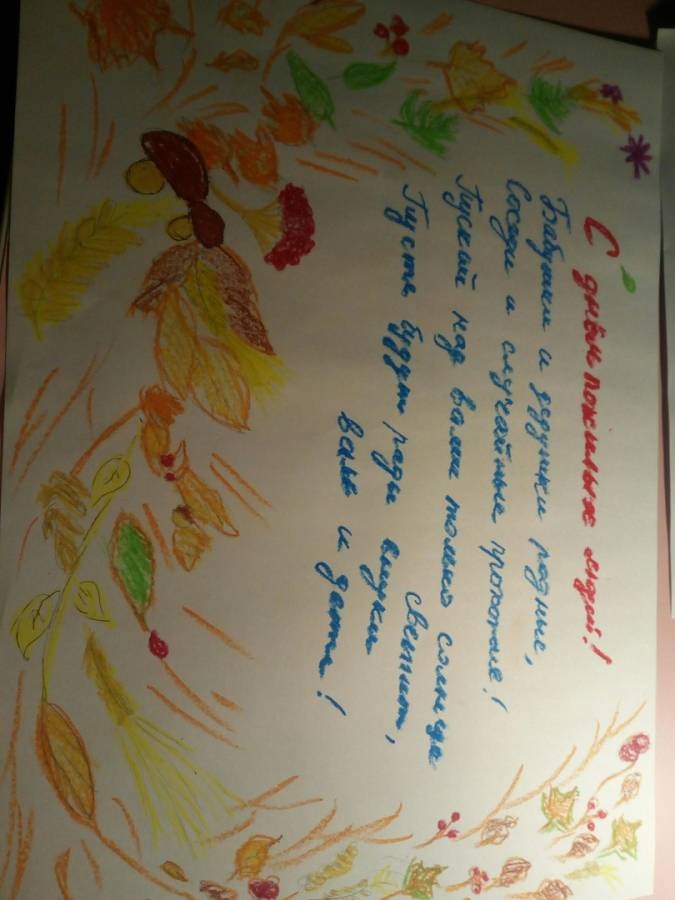 С днём пожилых людей!
Бабушки и дедушки родные,
Соседи и случайные прохожие!
Пускай над вами только солнце
светит,
Пусть будут рады внуки
вам и дети!